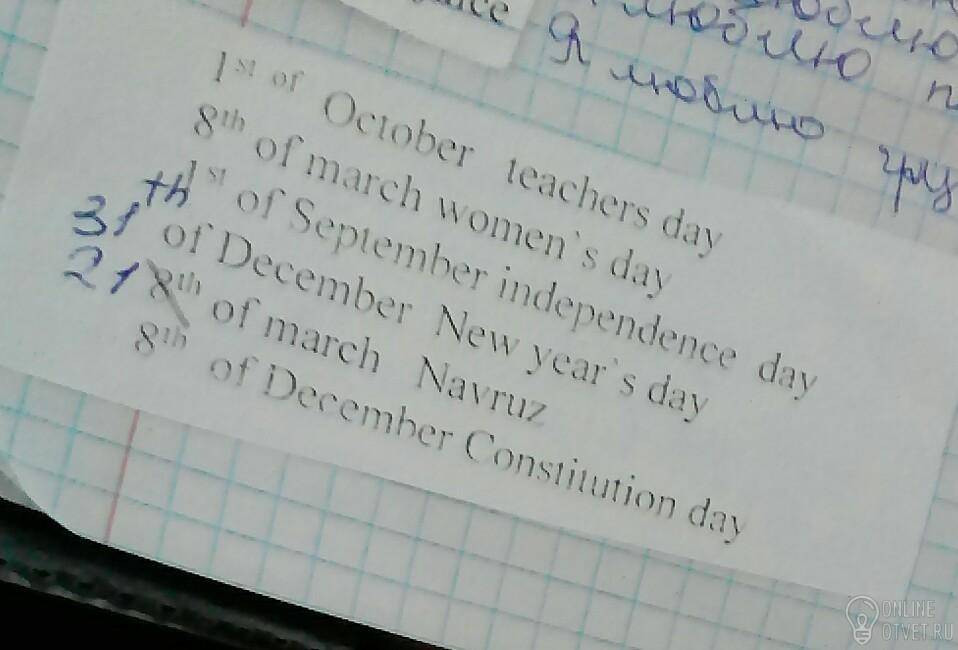 люблю
люблю
Я люблю
1st of October teachers day
8th of march women`s day
1st of September independence day
31th of December New year`s day
21 8th of march Navruz
8th of December Constitution day
ONLINE
OTVET.RU